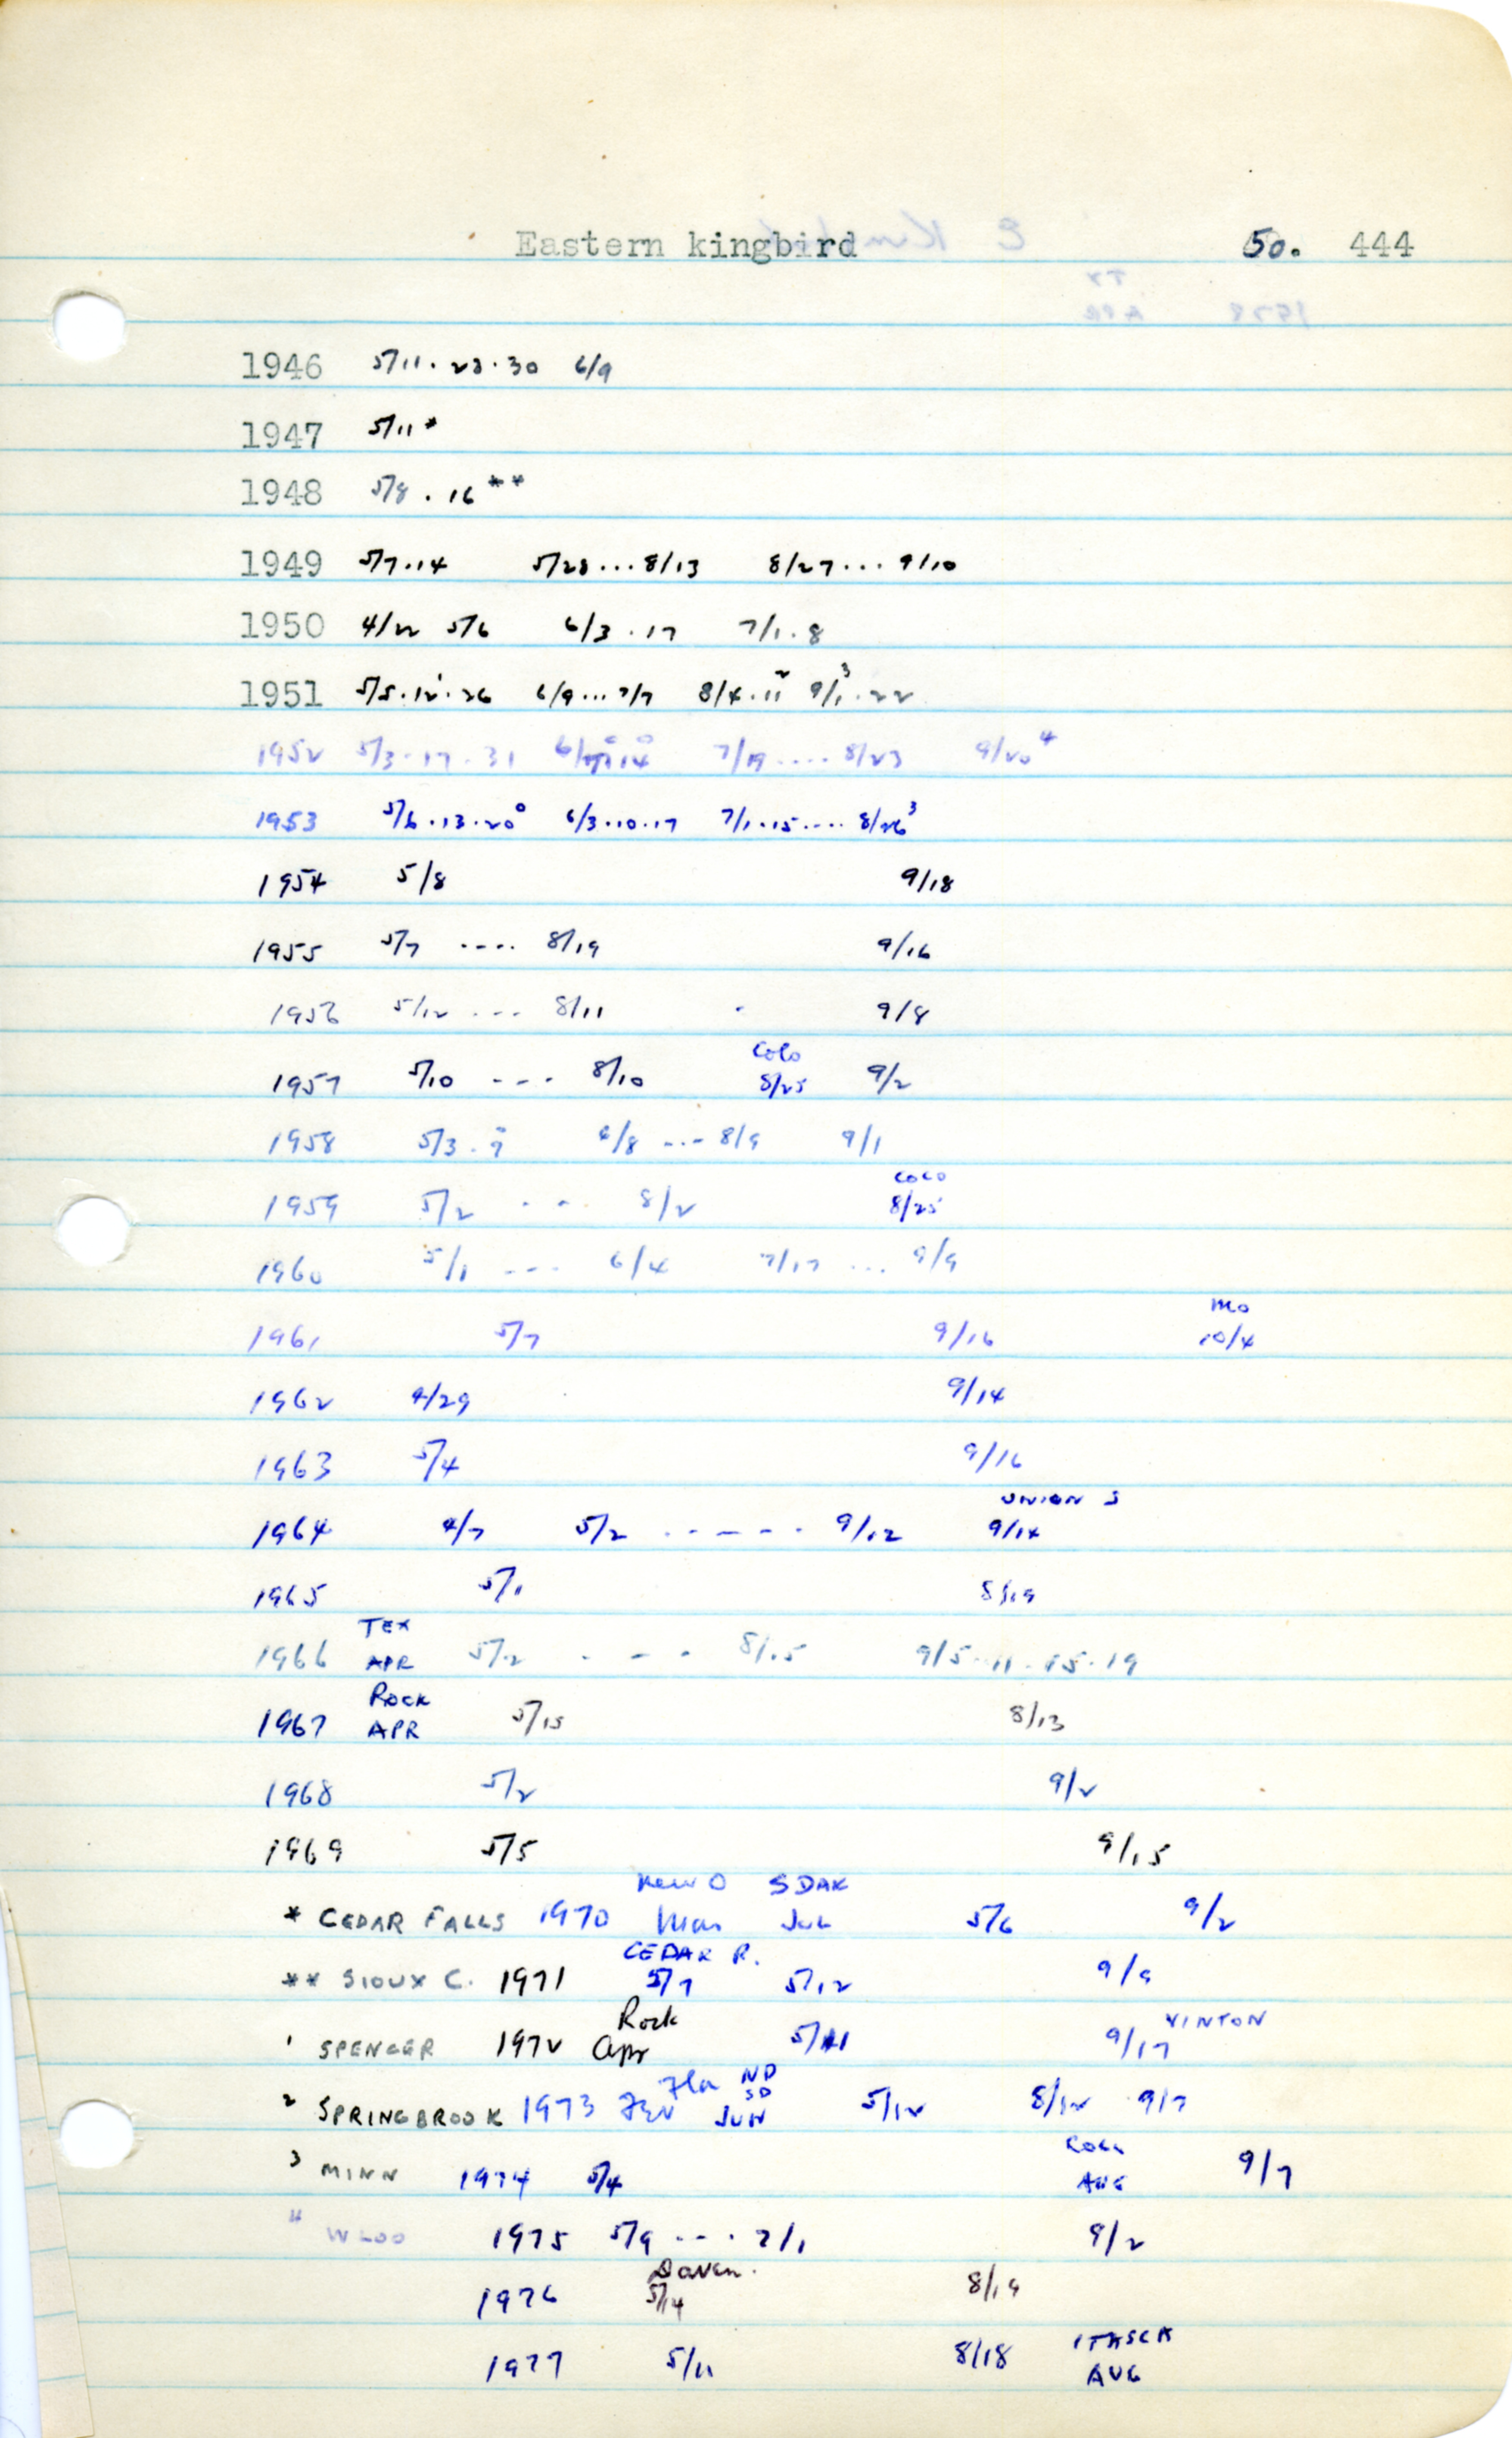 Eastern kingbird 50. 444
1946 5/11 . 23 . 30 6/9
1947 5/11 *
1948 5/8 . 16 **
1949 5/7 . 14 5/28 ... 8/13 8/27 ... 9/10
1950 4/22 5/6 6/3 . 17 7/1 . 8
1951 5/5 . 12' . 26 6/9 ... 7/7 8/4 . 11² 9/1³ . 22
1952 5/3 . 17 . 31 14 7/19 .... 8/23 9/20⁴
1953 5/6 . 13 . 20° 6/3 . 10 . 17 7/1 . 15 .... 8/26³
1954 5/8 9/18
1955 5/7 .... 8/19 9/16
1956 5/12 --- 8/11 9/8
Colo
1957 5/10 --- 8/10 8/25 9/2
1958 5/3 . 9 6/8 ... 8/9 9/1
Colo
1959 5/2 --- 8/2 8/25
1960 5/1 --- 6/4 7/17 ... 9/9
Mo
1961 5/7 9/16 10/4
1962 4/29 9/14
1963 5/4 9/16
UNION S
1964 4/7 5/2 ------ 9/12 9/14
1965 5/1 8/19
TEX
1966 APR 5/2 ---- 8/15 9/5 . 11 . 15 . 19
Rock
1967 APR 5/15 8/13
1968 5/2 9/2
1969 5/5 9/15
New O SDAK
* CEDAR FALLS 1970 Mar Jul 5/6 9/2
CEDAR R.
** SIOUX C. 1971 5/7 5/12 9/9
Rock VINTON
' SPENCER 1972 Apr 5/11 9/17
Fla ND
SD
² SPRINGBROOK 1973 JUN 5/12 8/12 9/7
³ MINN 1974 5/4 AUG 9/7
⁴ WLOO 1975 5/9 --- . 7/1 9/2
Daven.
1976 5/14 8/19
ITASCA
1977 5/11 8/18 AUG